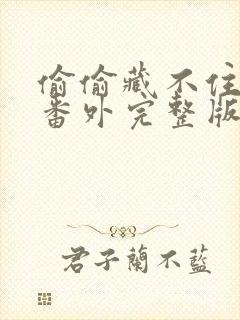 偷偷藏不住
番外完整版
君子蘭不藍